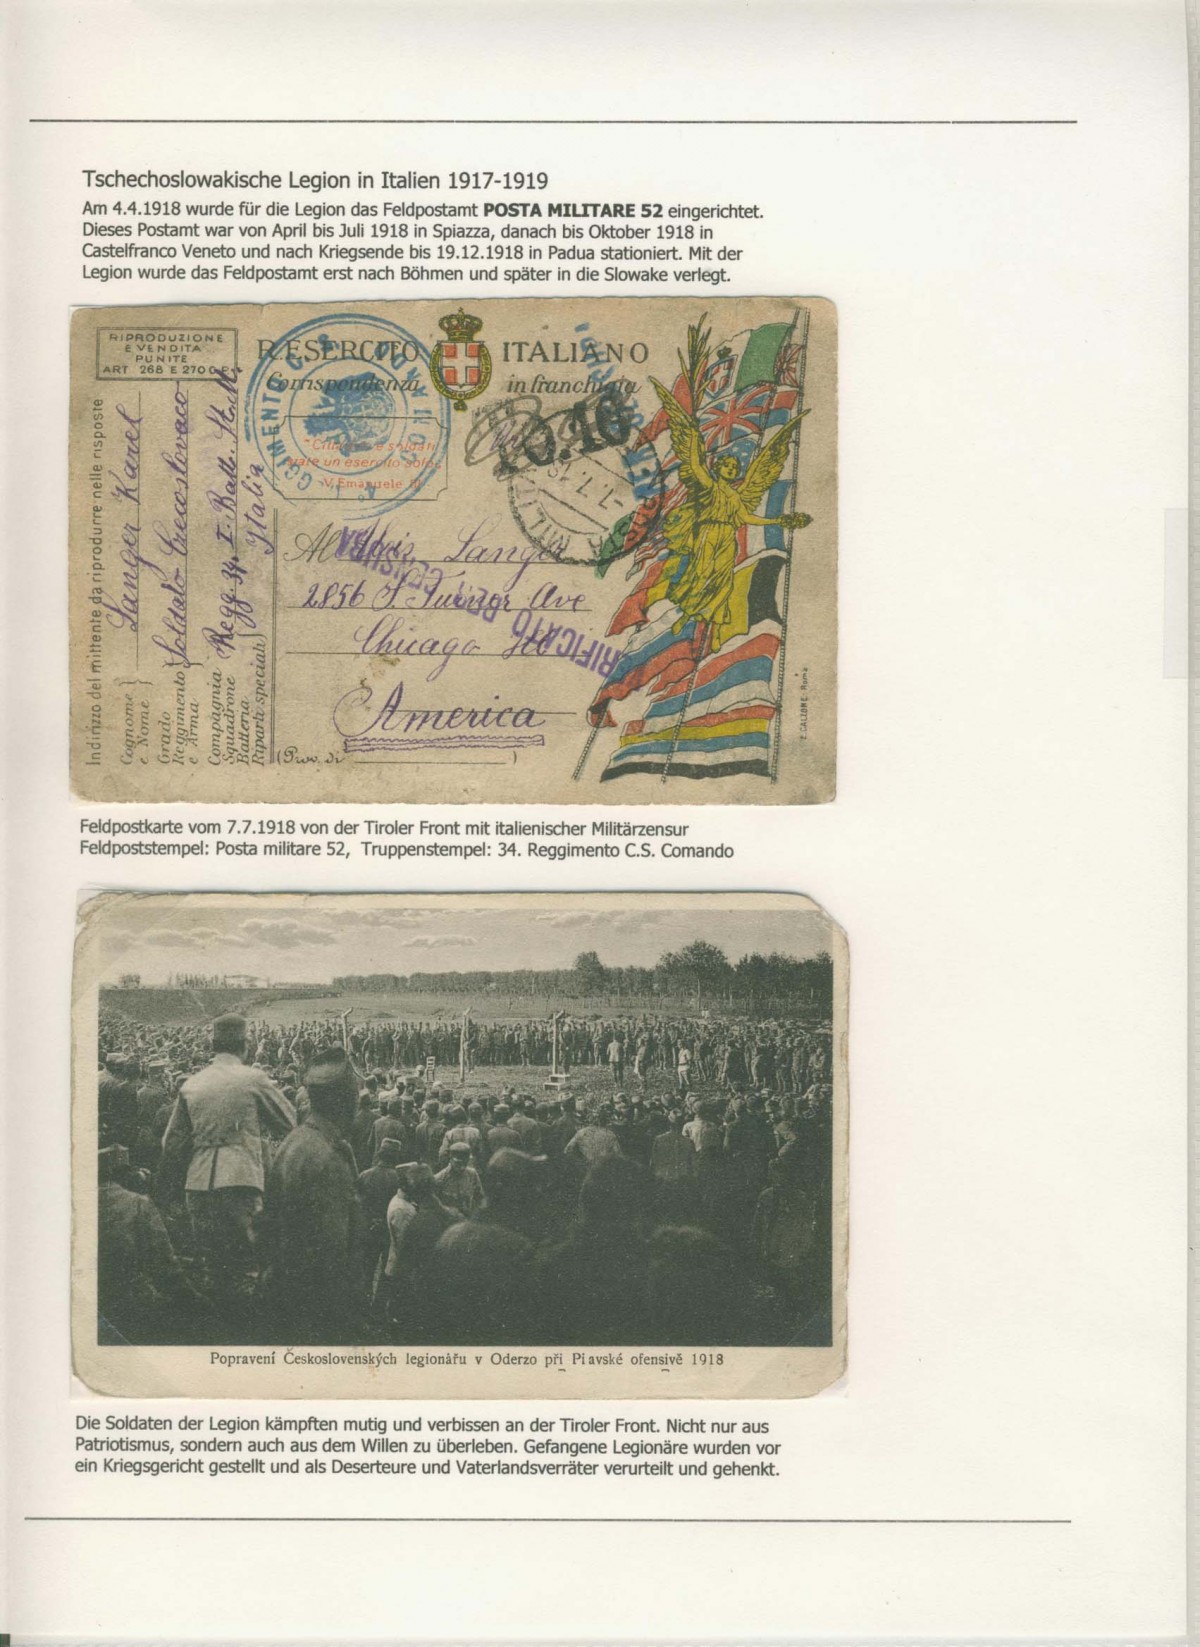 Tschechoslowakische Legion in Italien 1917-1919
Am 4.4.1918 wurde für die Legion das Feldpostamt POSTA MILITARE 52 eingerichtet.
Dieses Postamt war von April bis Juli 1918 in Spiazza, danach bis Oktober 1918 in
Castelfranco Veneto und nach Kriegsende bis 19.12.1918 in Padua stationiert. Mit der
Legion wurde das Feldpostamt erst nach Böhmen und später in die Slowake verlegt.
RIPRODUZIONE
E VENDITA
PUNITE
ART 268 E 270 C.P.
R. ESERCITO ITALIANO
Corrispondenza in franchigia
V. Emanuele III
Indirizzo del mittente da riprodurre nelle risposte
Cognome e Nome
Langer Karel
Grado
Reggimento
e Arma
Soldato Czecoslovaco
Compagnia
Squadrone
Batteria
Riparti speciali
Regg. 34.
Italia
10.16
VERIFICATO PER CENSURA
2856 S. Turner Ave
Chicago
America
(Prov. di )
E. CALZONE - Roma
Feldpostkarte vom 7.7.1918 von der Tiroler Front mit italienischer Militärzensur
Feldpoststempel: Posta militare 52, Truppenstempel: 34. Reggimento C.S. Comando
Popravení Československých legionářu v Oderzo při Piavské ofensivě 1918
Die Soldaten der Legion kämpften mutig und verbissen an der Tiroler Front. Nicht nur aus
Patriotismus, sondern auch aus dem Willen zu überleben. Gefangene Legionäre wurden vor
ein Kriegsgericht gestellt und als Deserteure und Vaterlandsverräter verurteilt und gehenkt.